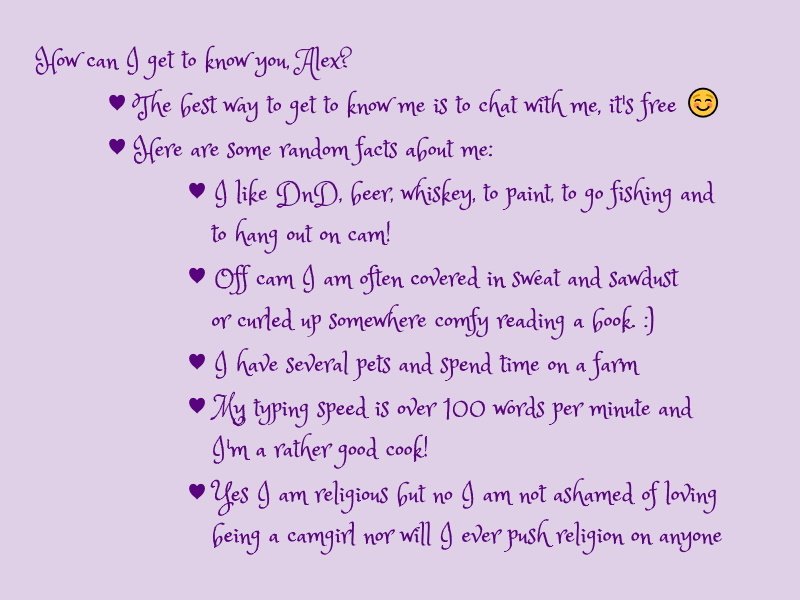 How can I get to know you, Alex?
♥ The best way to get to know me is to chat with me, it's free 😊
♥ Here are some random facts about me:
♥ I like DnD, beer, whiskey, to paint, to go fishing and
to hang out on cam!
♥ Off cam I am often covered in sweat and sawdust
or curled up somewhere comfy reading a book. :)
♥ I have several pets and spend time on a farm
♥ My typing speed is over 100 words per minute and
I'm a rather good cook!
♥ Yes I am religious but no I am not ashamed of loving
being a camgirl nor will I ever push religion on anyone